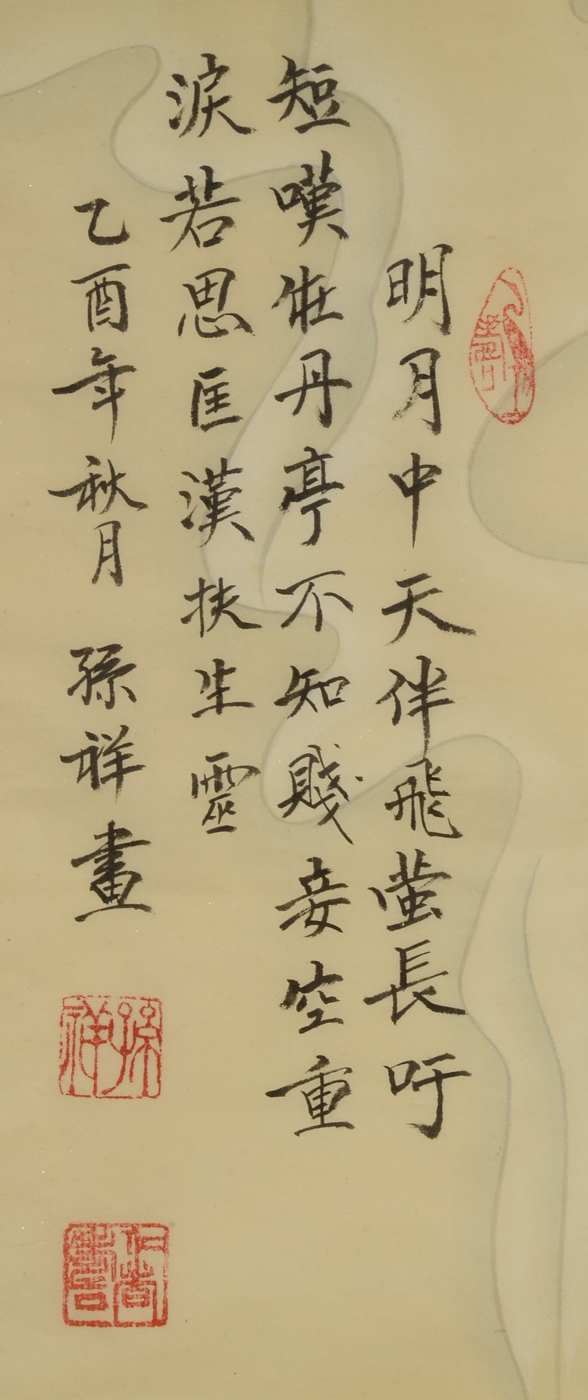 明月中天伴飛螢長吁
短嘆牡丹亭不知賤妾空重
淚若思匡漢扶生靈
乙酉年秋月 孫祥畫
孫祥